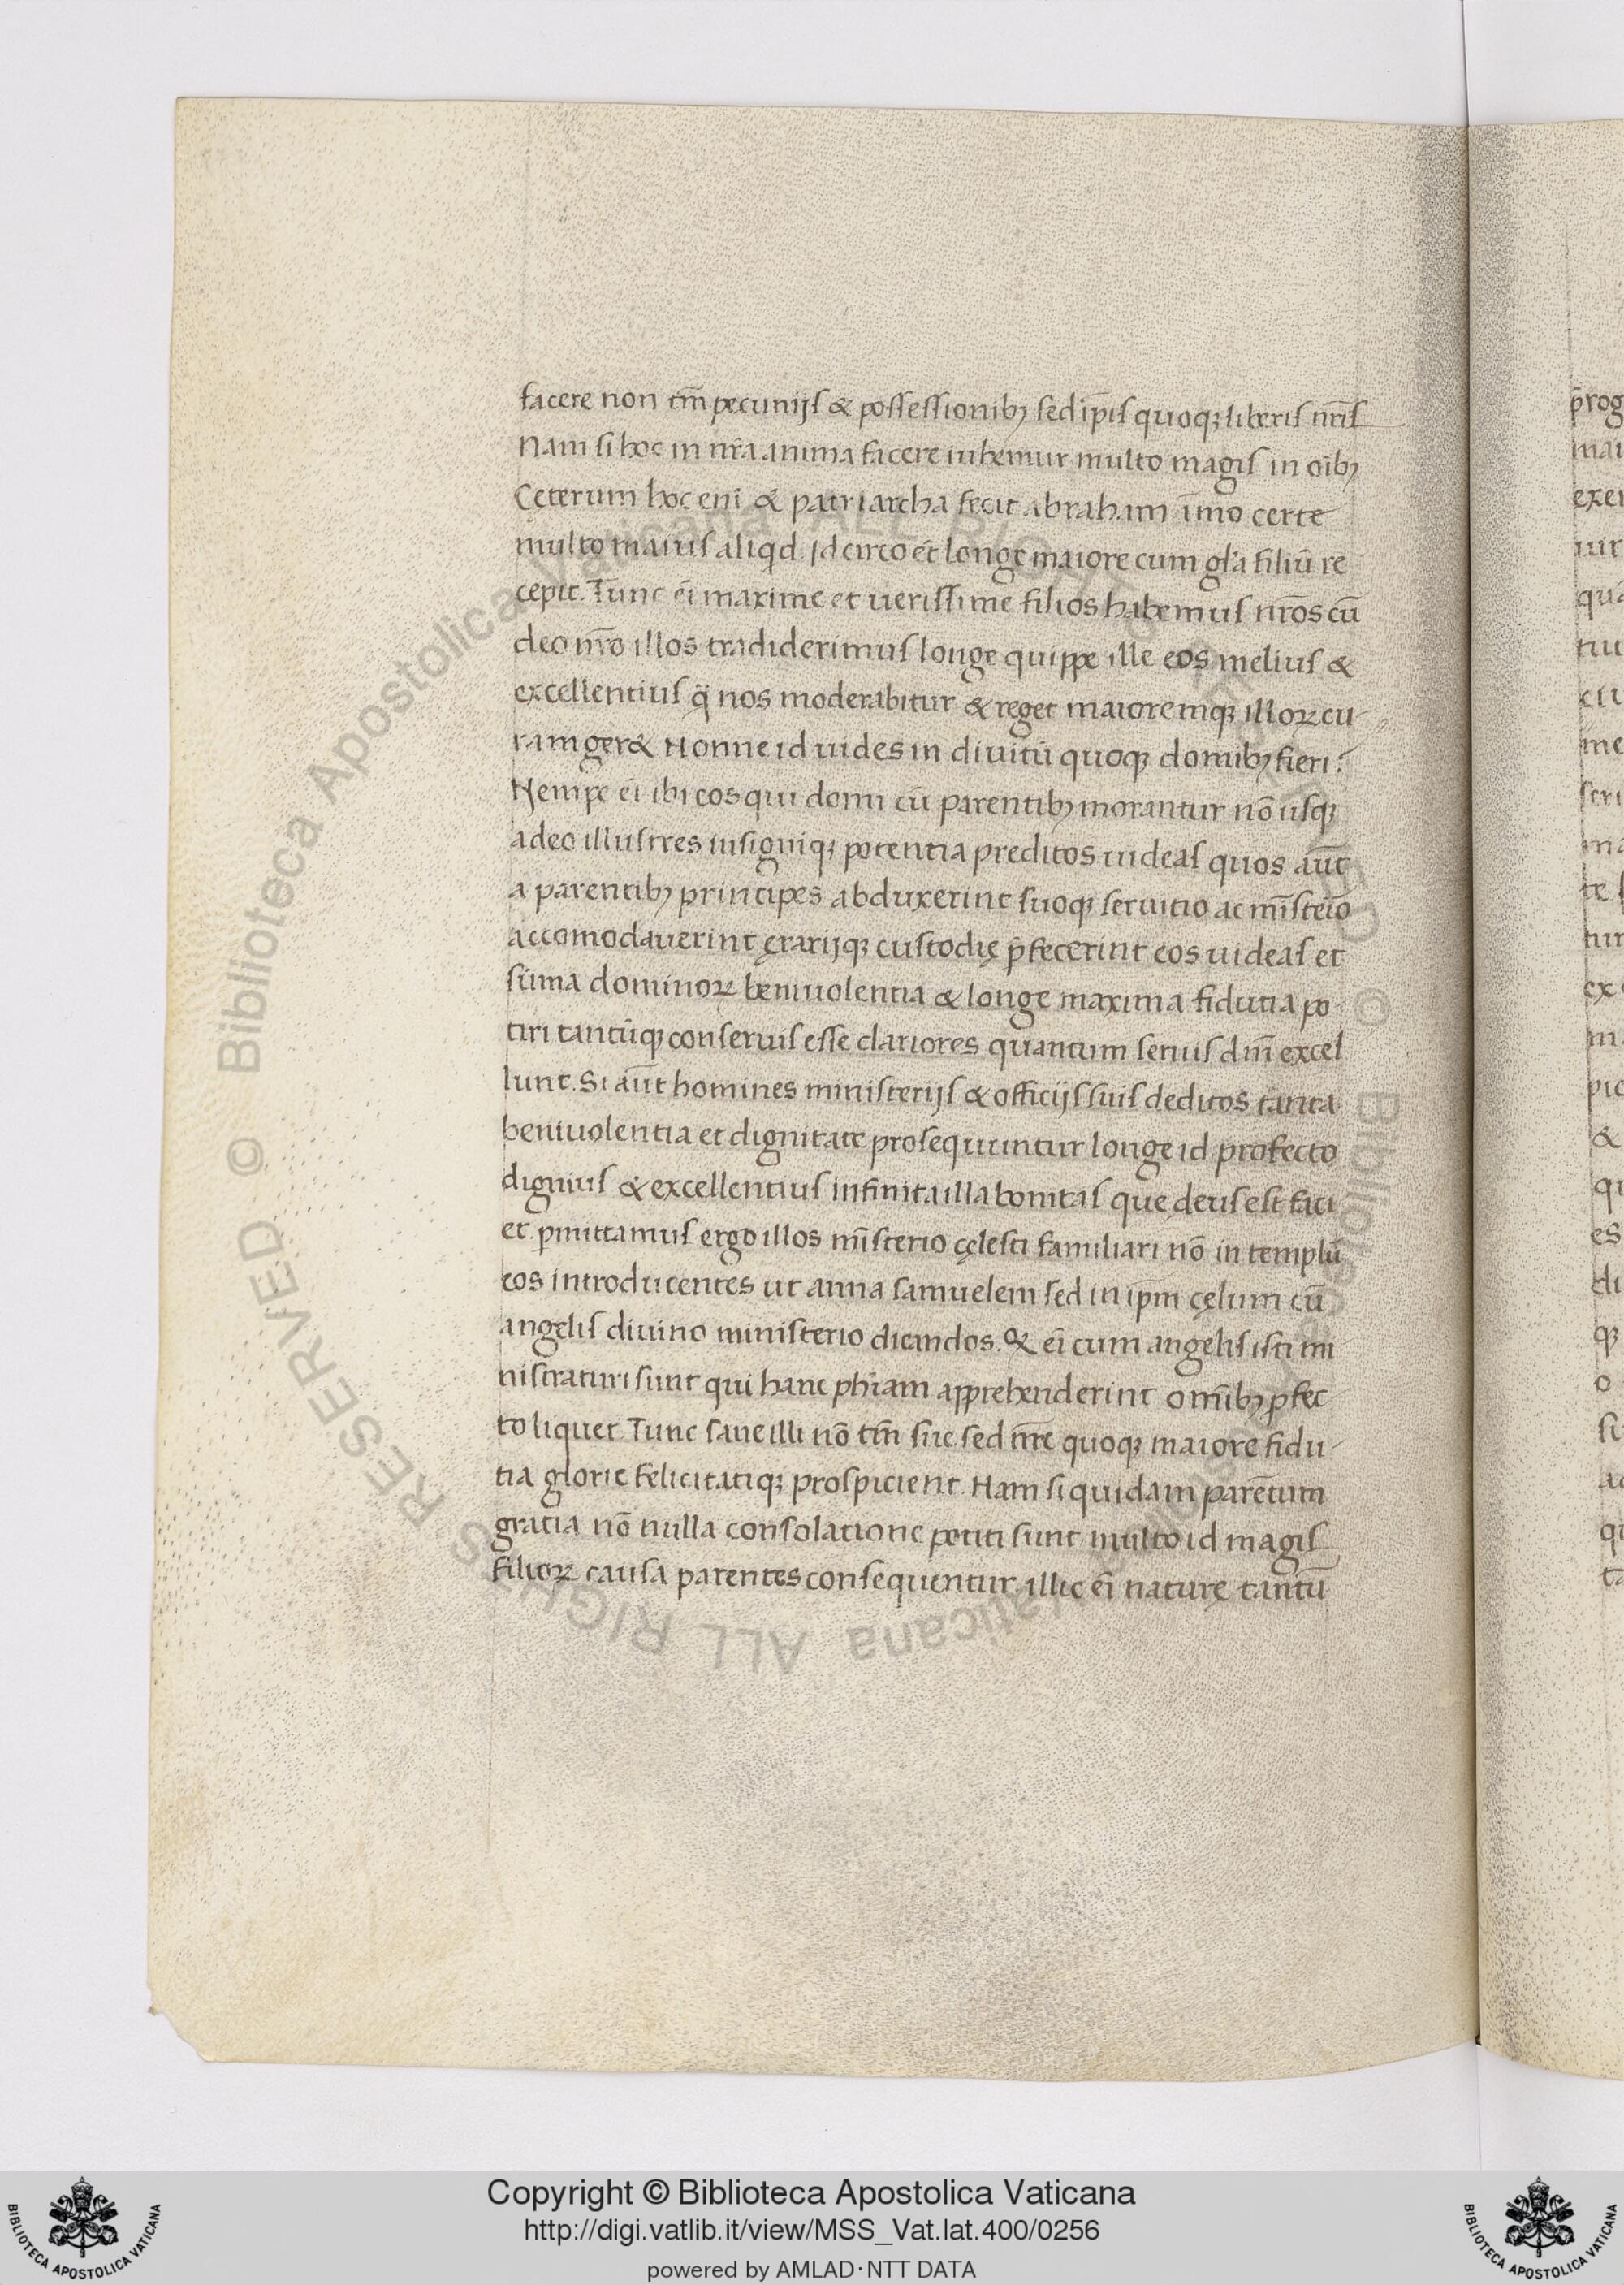 facere non tm̄ pecunijs & possessionibꝫ sed ip̄is quoqꝫ liberis nr̄is
Nam si hoc in nr̄a anima facere iubemur multo magis in oībꝫ
Ceterum hoc enī & patriarcha fecit abraham īmo certe
multo maius aliqd. Id circo et longe maiore cum gl̄a filiū re
cepit. Tunc ēi maxime et uerissime filios habemus nr̄os cū
deo nr̄o illos tradiderimus longe quippe ille eos melius &
excellentius q̄ nos moderabitur & reget maioremqꝫ illoꝝ cu
ram ger& Nonne id uides in diuitū quoqꝫ domibꝫ fieri?
Nempe ēi ibi eos qui domi cū parentibꝫ morantur nō usqꝫ
adeo illustres insigniqꝫ potentia preditos uideas quos aūt
a parentibꝫ principes abduxerint suoqꝫ seruitio ac mīsteīo
accomodauerint ęrarijqꝫ custodię p̄fecerint eos uideas et
sūma dominoꝝ beniuolentia & longe maxima fidutia po
tiri tantūqꝫ conseruis esse clariores quantum seruis dn̄i excel
lunt. Si aūt homines ministerijs & officijs suis deditos tanta
beniuolentia et dignitate prosequuntur longe id profecto
dignius & excellentius infinita illa bonitas que deus est faci
et. pmittamus ergo illos mīsterio cęlesti familiari nō in templū
eos introducentes ut anna samuelem sed in ip̄m cęlum cū
angelis diuino ministerio dicandos. Qꝫ ēi cum angelis isti mi
nistraturi sunt qui hanc phīam apprehenderint omībꝫ ꝓfec
to liquet. Tunc sane illi nō tm̄ sue sed nr̄e quoqꝫ maiore fidu
tia glorie felicitatiqꝫ prospicient. Nam si quidam parētum
gratia nō nulla consolatione potiti sunt multo id magis
filioꝝ causa parentes consequentur. illic eī naturę tantū
Copyright © Biblioteca Apostolica Vaticana
http://digi.vatlib.it/view/MSS_Vat.lat.400/0256
powered by AMLAD·NTT DATA